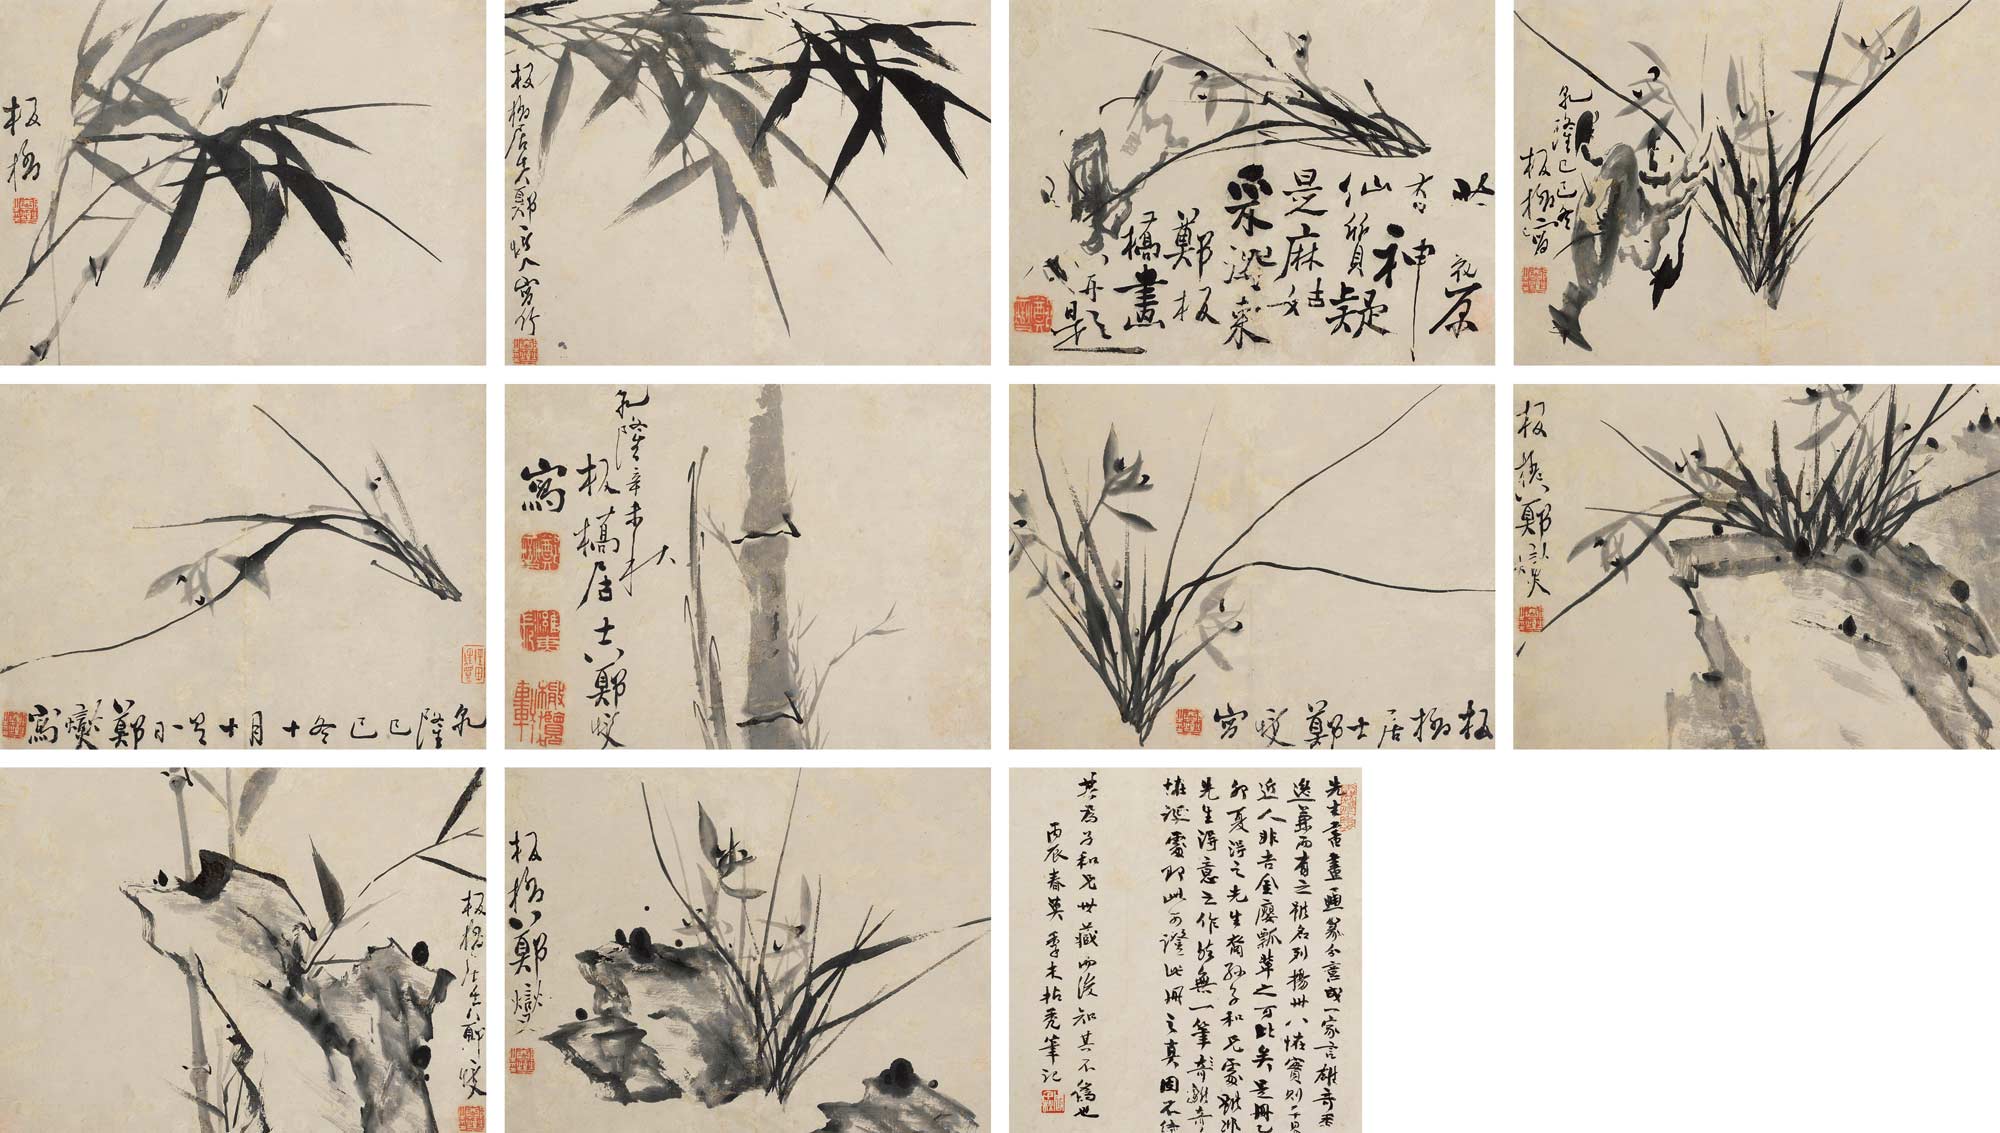 板橋
板橋居士鄭燮寫竹
此
花原
有神
仙質凝
是麻姑
采澀來
鄭板
橋畫
再題
乾隆己巳冬
板橋寫
乾隆己巳冬十月十日鄭燮寫
乾隆辛未
板橋居士鄭燮
寫
板橋居士鄭燮寫
板橋鄭燮
板橋居士鄭燮
板橋鄭燮
先生書畫通篆分書成一家言雄奇秀
逸兼而有之雖名列揚州八怪實則
近人非吉金廖瓢輩之可比矣是冊乙
卯夏得之先生裔孫子和兄處雖非
先生得意之作然無一筆
怪誕處即此可證此冊之真固不
其為子和兄世藏而後知其不偽也
丙辰春莫季木拈禿筆記